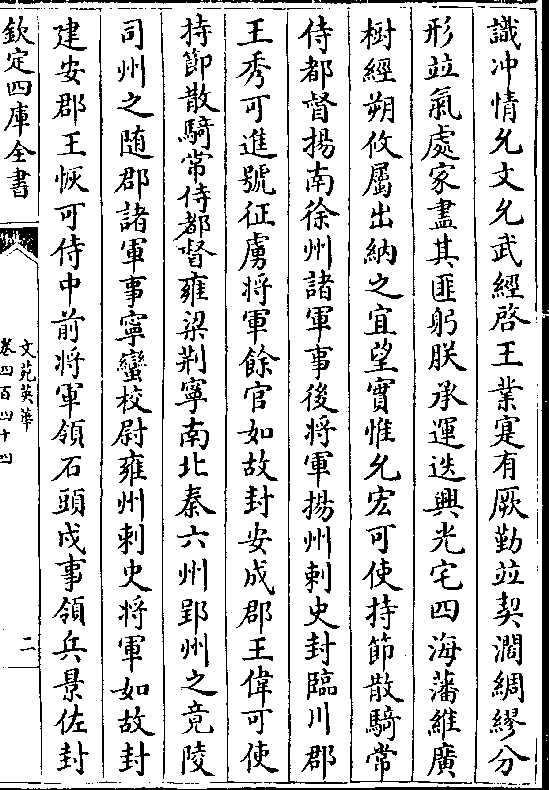 識冲情允文允武經啓王業寔有厥勤並契濶綢繆分
形並氣處家盡其匪躬朕承運迭興光宅四海藩維廣
樹經朔攸屬出納之宜望實惟允宏可使持節散騎常
侍都督揚南徐州諸軍事後將軍揚州刺史封臨川郡
王秀可進號征虜將軍餘官如故封安成郡王偉可使
持節散騎常侍都督雍梁荆寧南北秦六州郢州之竟陵
司州之随郡諸軍事寧蠻校尉雍州刺史将軍如故封
建安郡王恢可侍中前将軍領石頭戍事領兵景佐封
欽定四庫全書
文苑英華
卷四百四十四
二